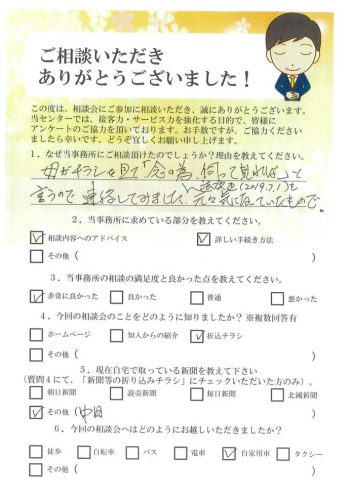 ご相談いただき
ありがとうございました！
この度は、相談会にご参加に相談いただき、誠にありがとうございます。
当センターでは、接客力・サービス力を強化する目的で、皆様に
アンケートのご協力を頂いております。お手数ですが、ご協力ください
ましたら幸いです。どうぞ宜しくお願い申し上げます。
1．なぜ当事務所にご相談頂けたのでしょうか？理由を教えてください。
母がチラシを見て「念の為、伺って見れば」と
(2019.7.1)も
言うので連絡してみました。元々気になっていたもので。
2．当事務所に求めている部分を教えてください。
相談内容へのアドバイス 詳しい手続き方法
その他（ ）
3．当事務所の相談の満足度と良かった点を教えてください。
非常に良かった 良かった 普通 悪かった
4．今回の相談会のことをどのように知りましたか？※複数回答有
ホームページ 知人からの紹介 折込チラシ
その他（ ）
5．現在自宅で取っている新聞を教えて下さい
（質問4にて、「新聞等の折り込みチラシ」にチェックいただいた方のみ）。
朝日新聞 読売新聞 毎日新聞 北國新聞
その他（中日 ）
6．今回の相談会へはどのようにお越しいただきましたか？
徒歩 自転車 バス 電車 自家用車 タクシー
その他（ ）